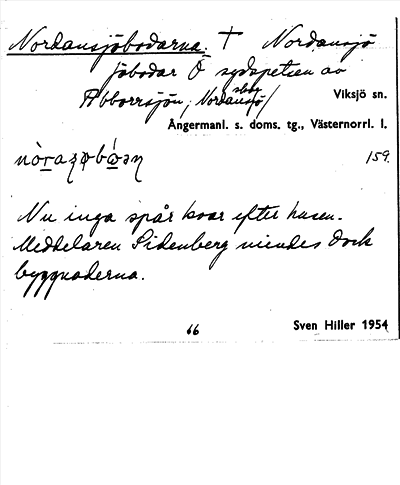 Nordansjöbodarna. † Nordansjö
fäbodar Ö sydspetsen av
Abborrsjön, Nordansjö skog/
Viksjö sn.
Ångermanl. s. doms. tg., Västernorrl. l.
159.
Nu inga spår kvar efter husen.
Meddelaren Sidenberg mindes dock
byggnaderna.
66 Sven Hiller 1954